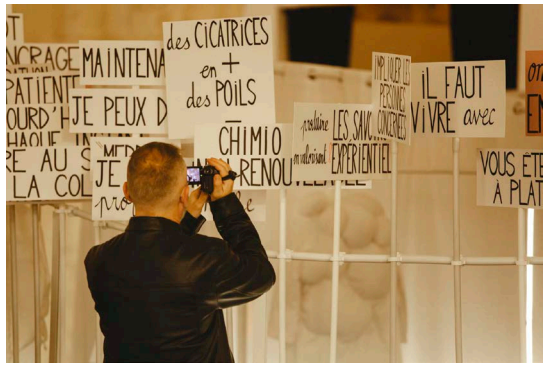 T
NCRAGE
PATIENT
OURD'H
HAQUE
RE AU S
LA COL
MAINTENA
JE PEUX D
JE
pro
des CICATRICES
en +
des POILS
CHIMIO
RENOU
prolline
LES SAVO
EXPÉRIENTIEL
IMPLIQUER LES
PERSONNES
CONCERNÉES
iL FAUT
ViVRE avec
on
EN
VOUS ÊTE
À PLAT